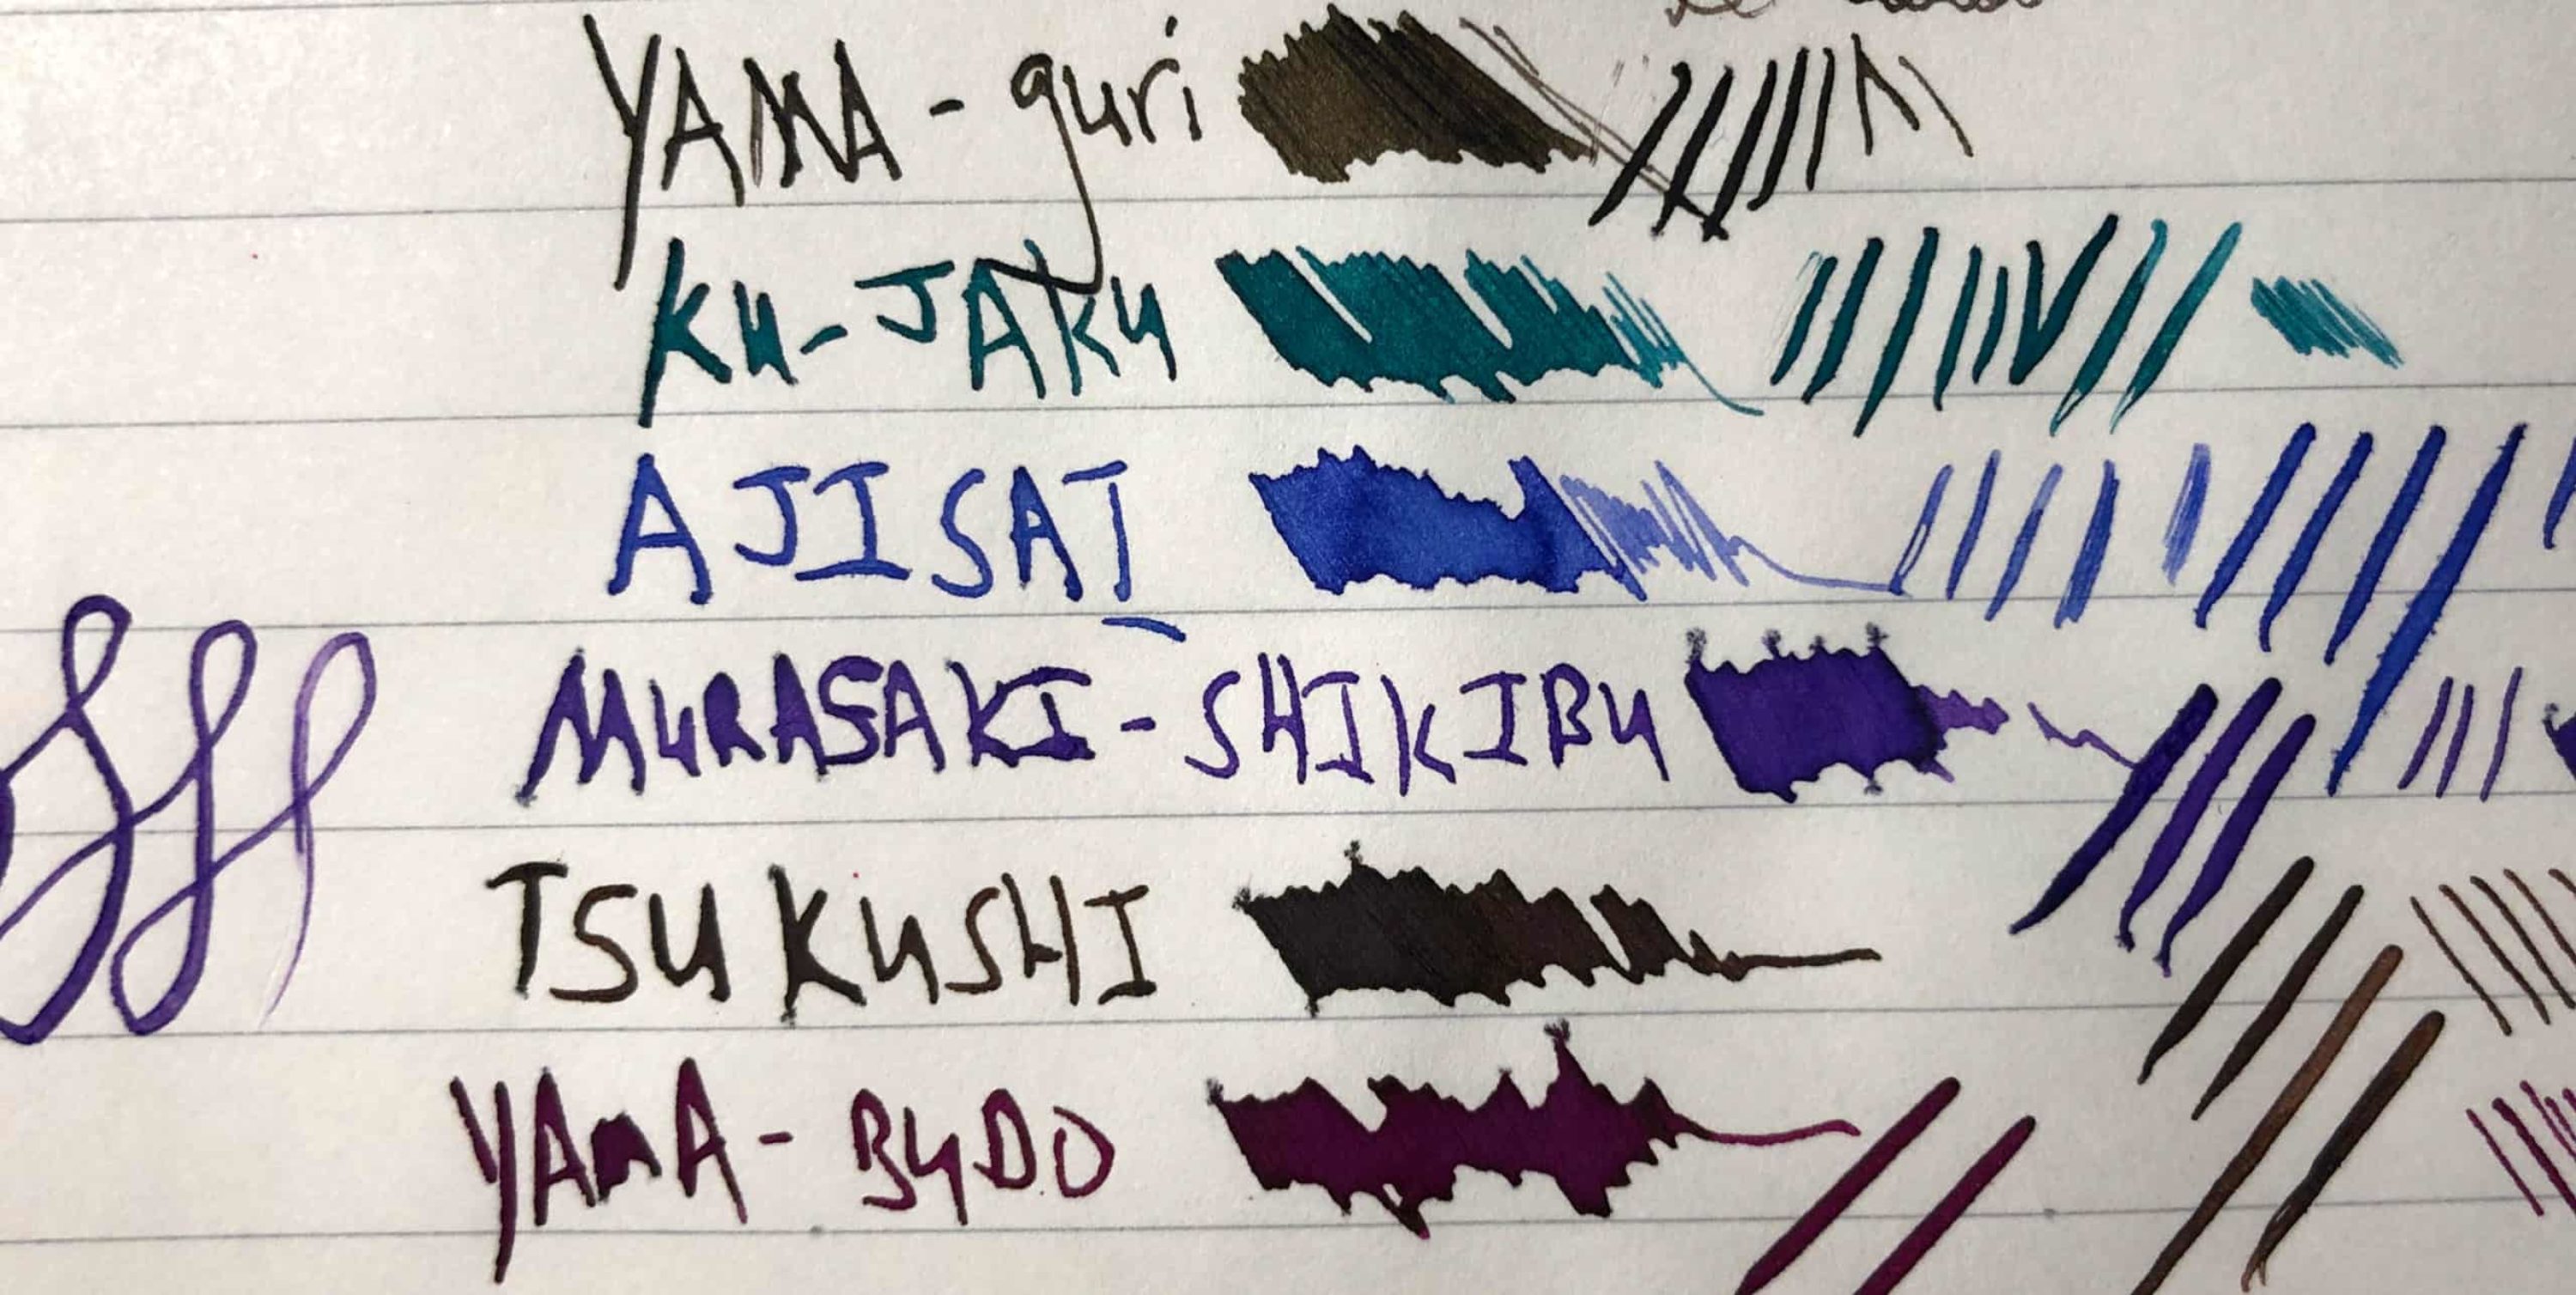 YAMA - guri
KU-JAKU
AJISAI
MURASAKI-SHIKIBU
TSUKUSHI
YAMA- BUDO